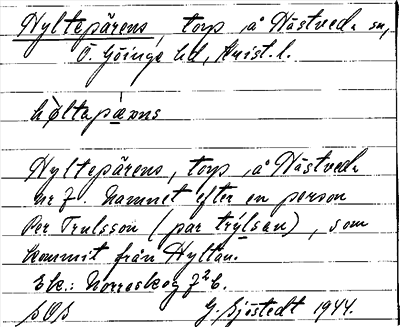 Hyltepärens, torp å Nästveda sn,
Ö. Göinge hd, Krist. l.
høltapæ̀rns
Hyltepärens, torp å Nästveda
nr 7. Namnet efter en person
Per Trulsson (pär trýlsən), som
kommit från Hyltan.
Ek.: Norraskog 7²6.
G. Sjöstedt 1944.